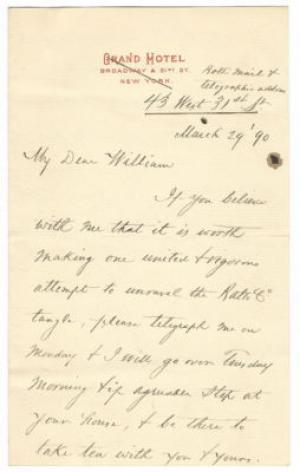 GRAND HOTEL
BROADWAY & 31ST ST.
NEW YORK.
Both mail &
telegraphic address
43 West 31st St.
March 29 '90
My Dear William
If you believe
with me that it is worth
making one united & vigorous
attempt to unravel the
tangle, please telegraph me on
Monday & I will go over Tuesday
Morning & if agreeable stop at
your house, & be there to
take tea with you & yours.